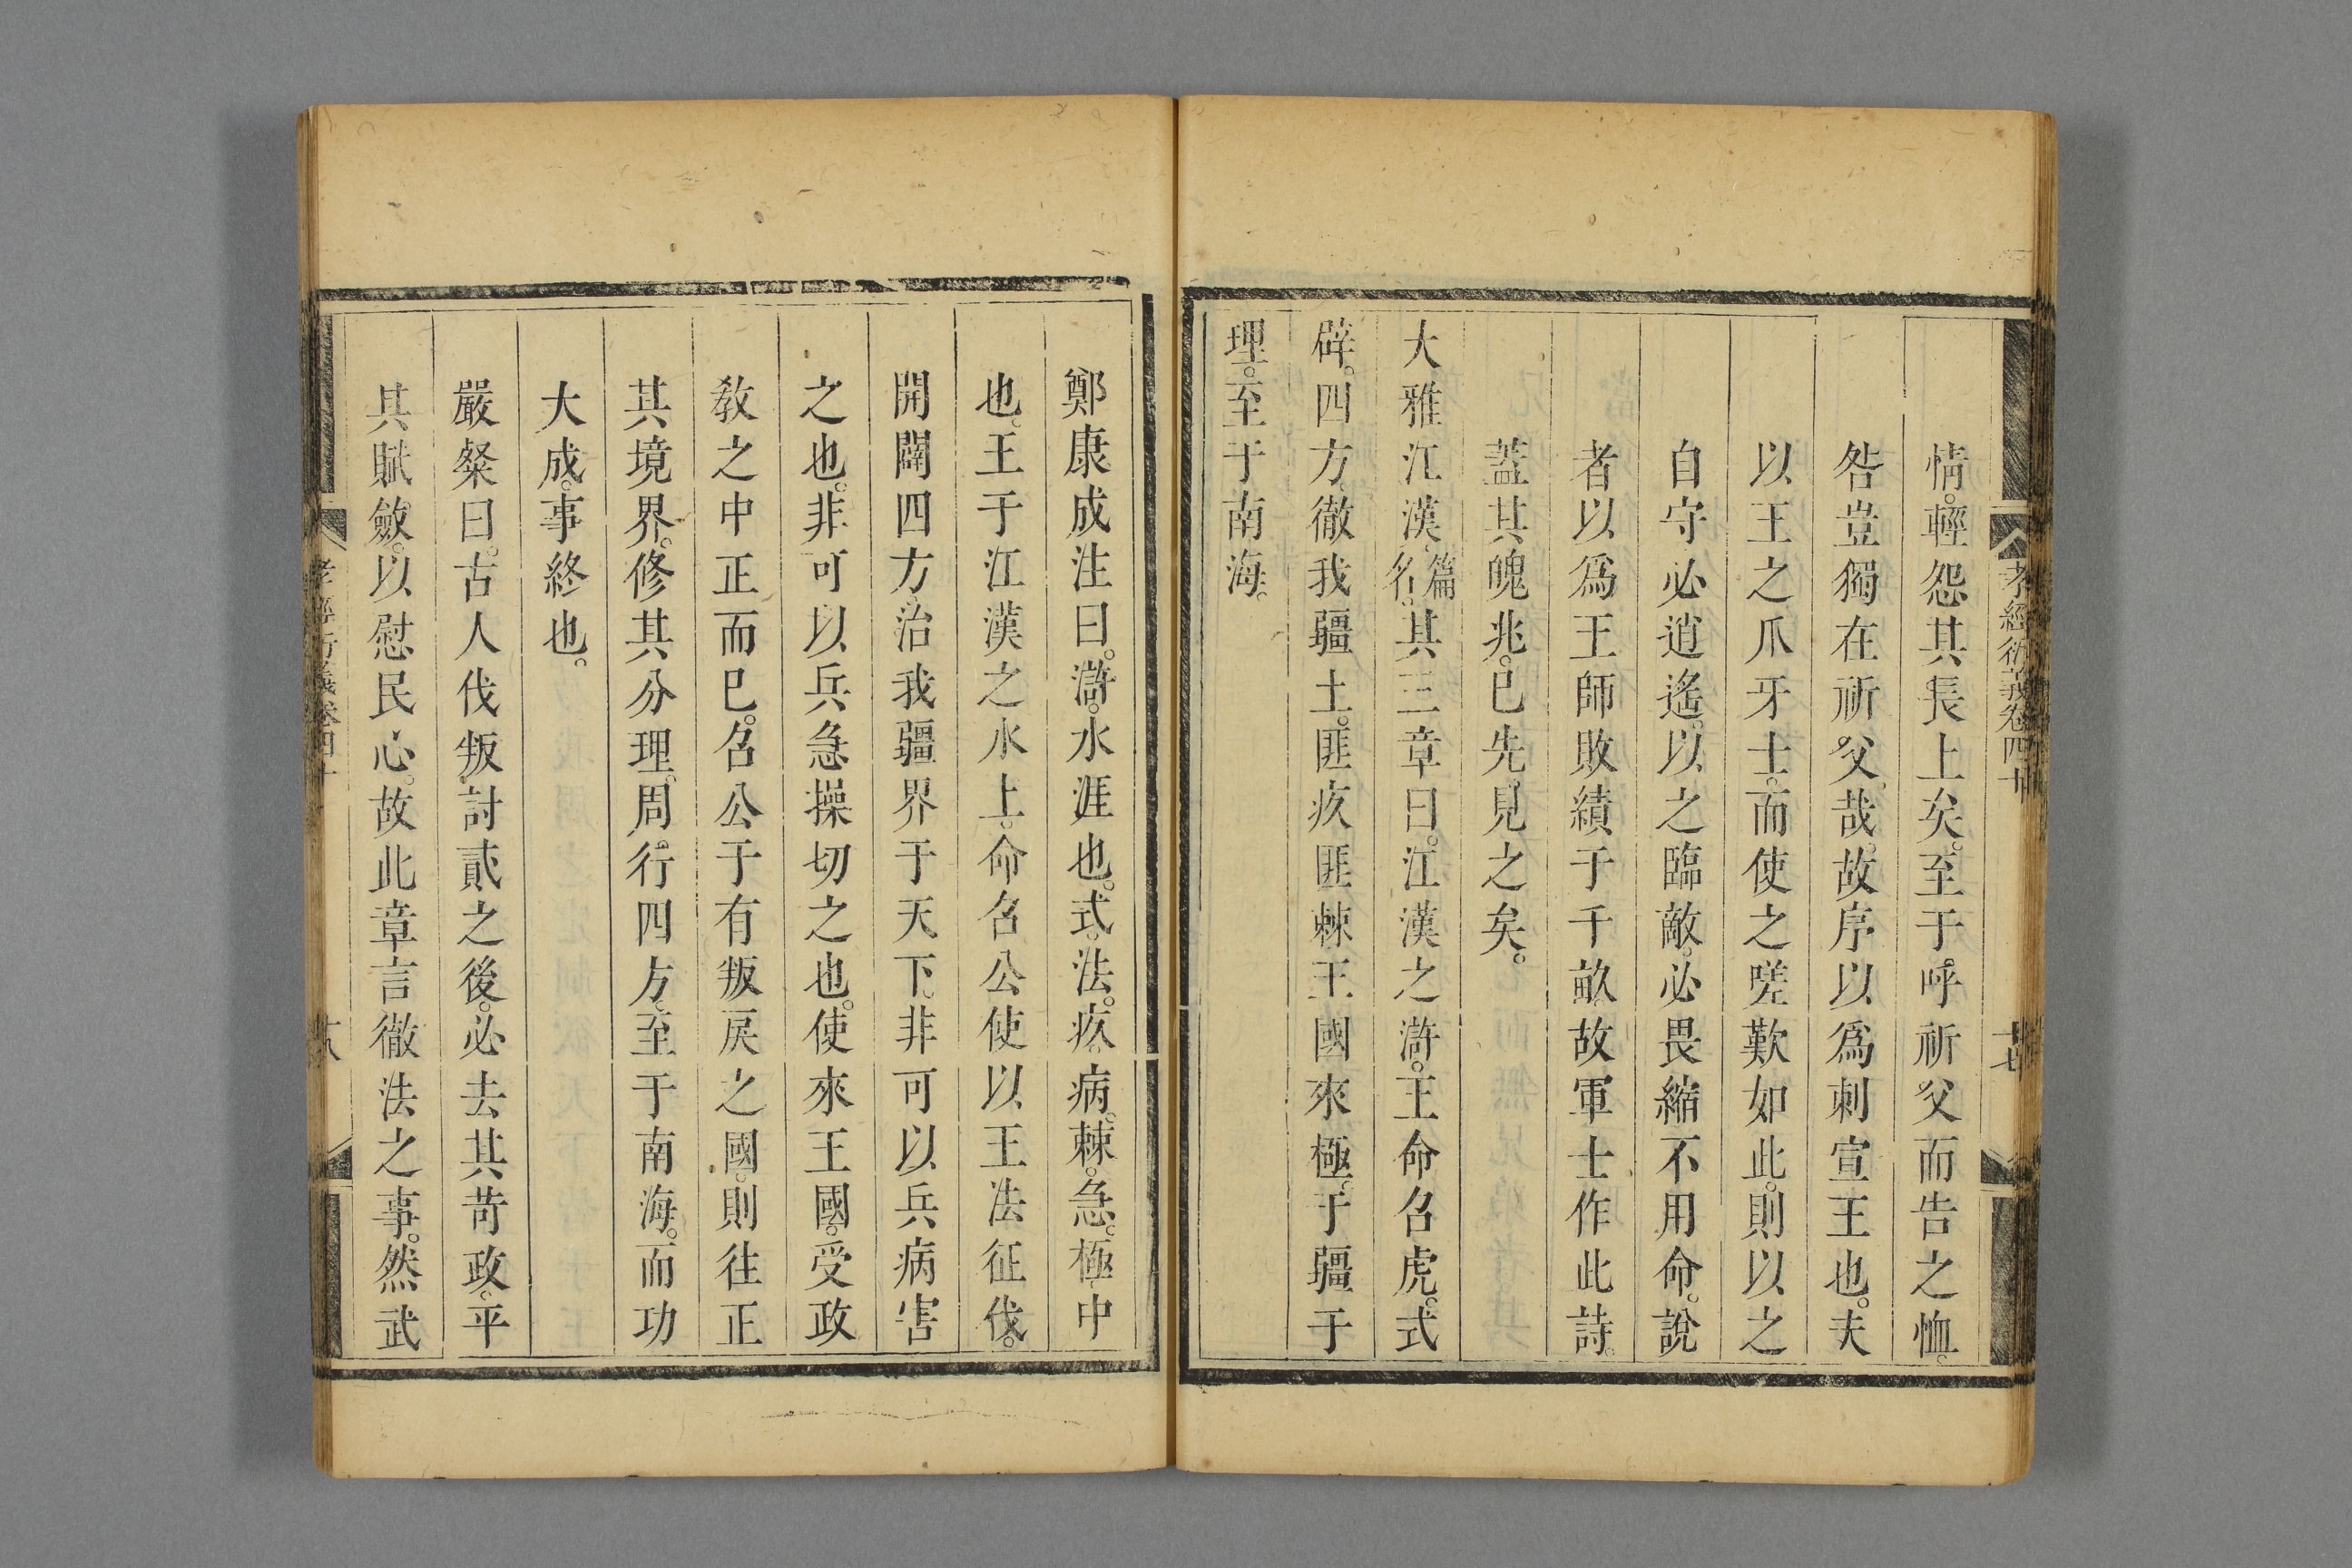 孝經衍義卷四十
十七
情。輕怨其長上矣。至于呼祈父而告之恤。
咎豈獨在祈父哉。故序以爲刺宣王也。夫
以王之爪牙士。而使之嗟歎如此。則以之
自守必逍遙。以之臨敵。必畏縮不用命。說
者以爲王師敗績于千畝。故軍士作此詩。
蓋其醜兆。已先見之矣。
大雅江漢篇名。其三章曰。江漢之滸。王命召虎。式
辟。四方。徹我疆土。匪疚匪棘王國來極。于疆于
理。至于南海。
鄭康成注曰。滸。水涯也。式。法。疚。病。棘。急。極。中
也。王于江漢之水上。命召公使以王法征伐。
開闢四方。治我疆界于天下。非可以兵病害
之也。非可以兵急操切之也。使來王國。受政
敎之中正而已。召公于有叛戾之國。則往正
其境界。修其分理。周行四方。至于南海。而功
大成。事終也。
嚴粲曰。古人伐叛討貳之後。必去其苛政。平
其賦斂。以慰民心。故此章言徹法之事。然武
孝經衍義卷四十
十八